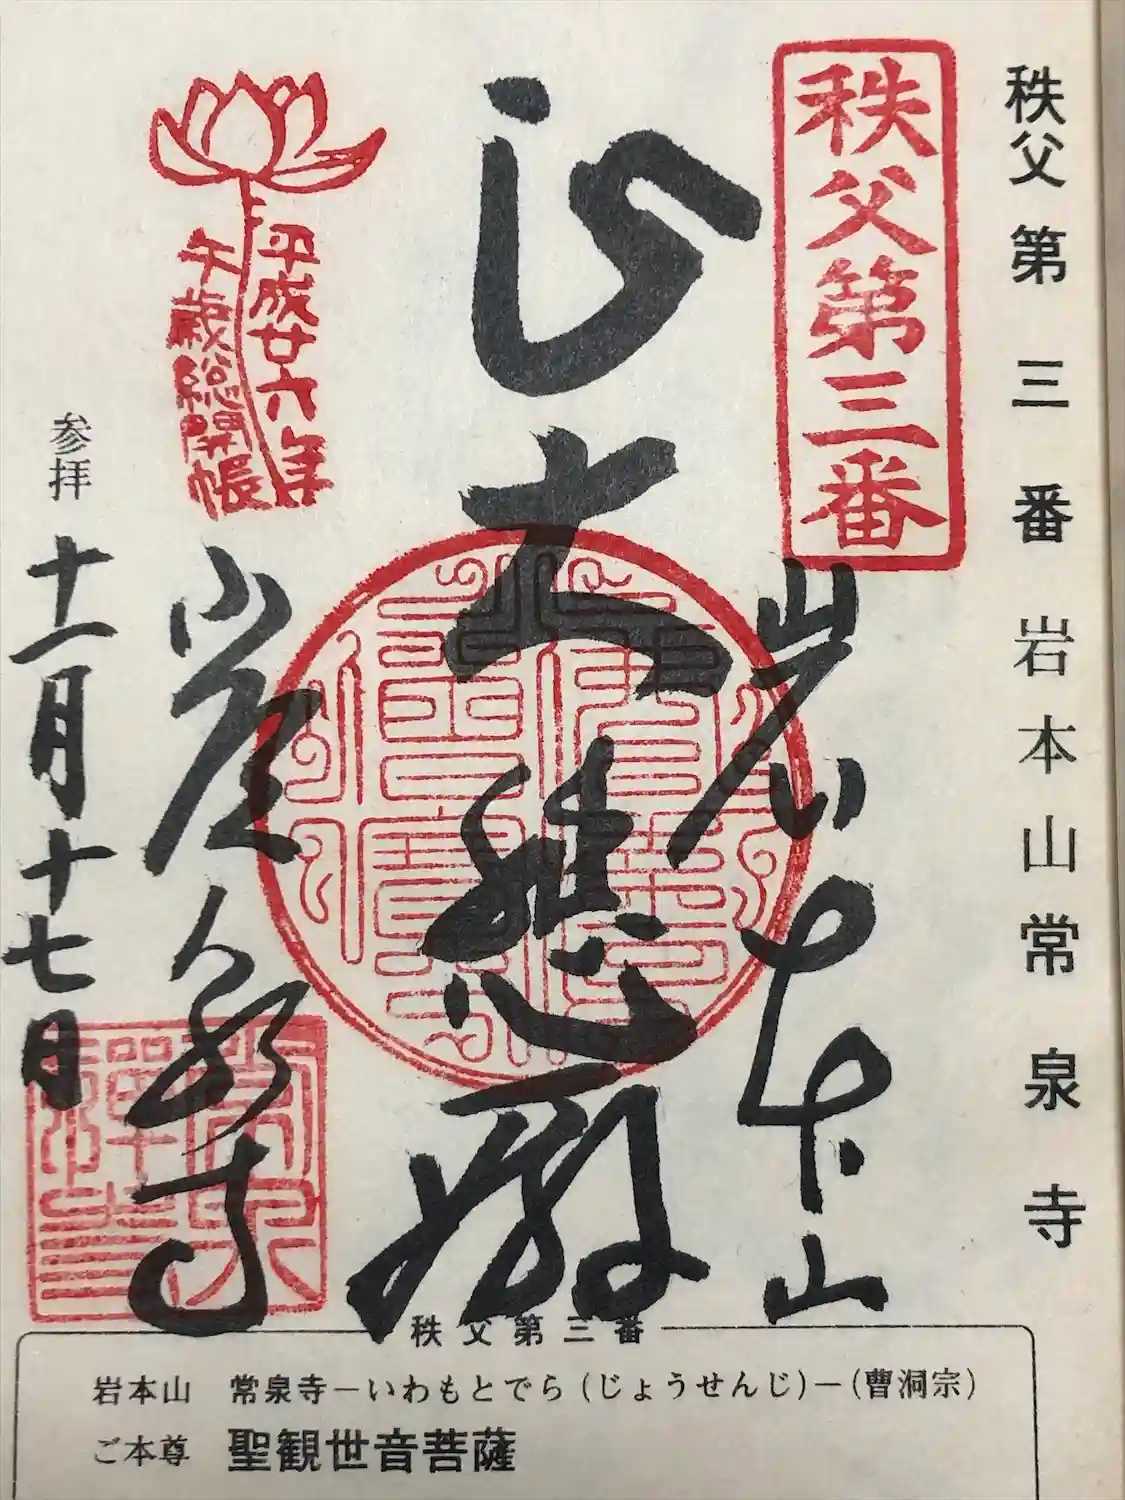 秩父第三番 岩本山 常泉寺
秩父第三番
岩本山
大悲殿
平成廿六年
午歳総開帳
常泉寺
参拝 十一月十七日
秩父第三番
岩本山 常泉寺ーいわもとでら(じょうせんじ)ー(曹洞宗)
ご本尊 聖観世音菩薩